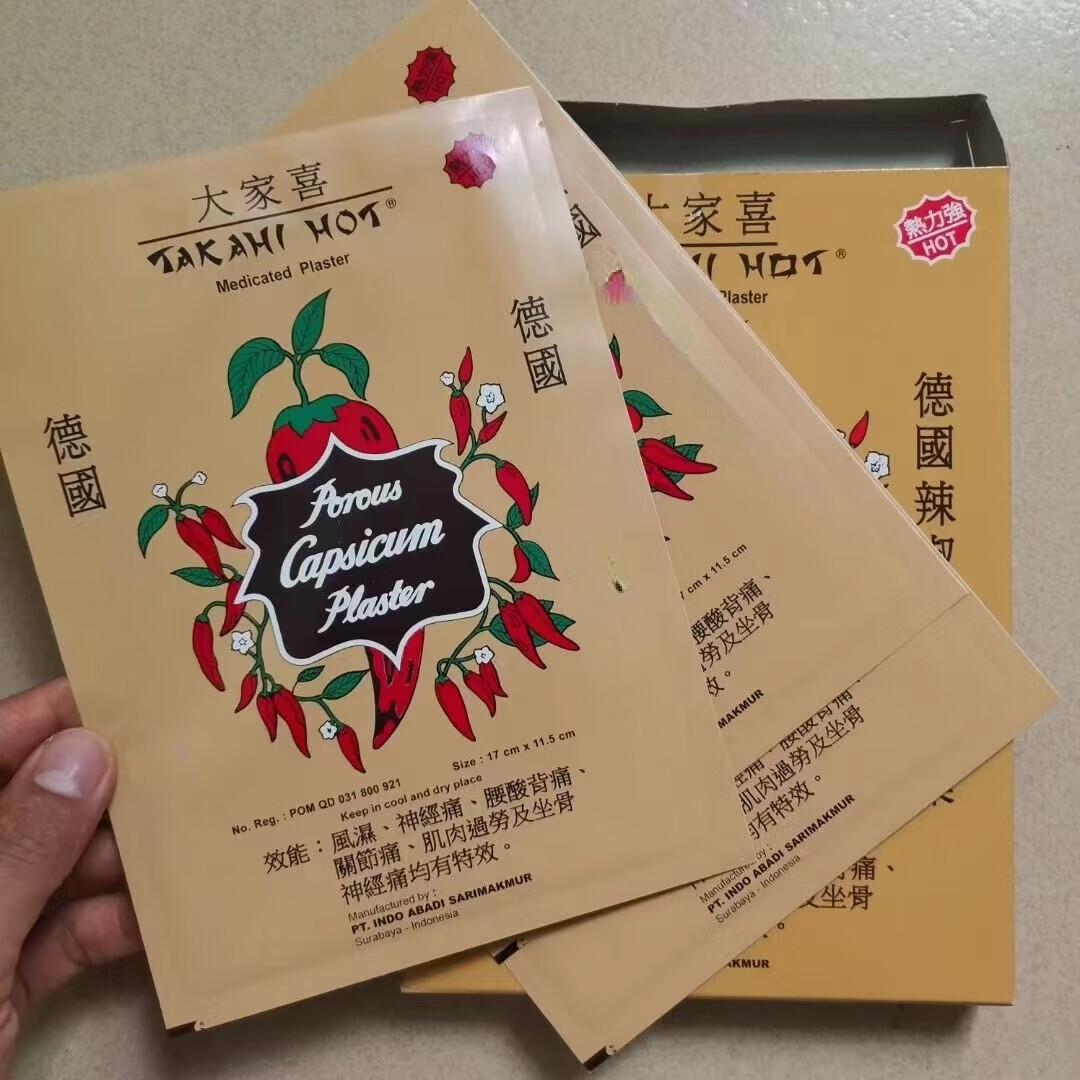 大家喜
TAKAHI HOT®
Medicated Plaster
德國
德國
Porous
Capsicum
Plaster
Size : 17 cm x 11.5 cm
No. Reg. : POM QD 031 800 921
Keep in cool and dry place
效能：風濕、神經痛、腰酸背痛、
關節痛、肌肉過勞及坐骨
神經痛均有特效。
Manufactured by :
PT. INDO ABADI SARIMAKMUR
Surabaya - Indonesia
cm x 11.5 cm
腰酸背痛、
勞及坐骨
效。
MAKMUR
腰酸背痛、
肌肉過勞及坐骨
有特效。
SARIMAKMUR
Manufactured by :
PT. INDO ABADI SARIMAKMUR
Surabaya - Indonesia
大家喜
HOT®
Plaster
熱力強
HOT
德國辣
痛、
及坐骨
AKMUR